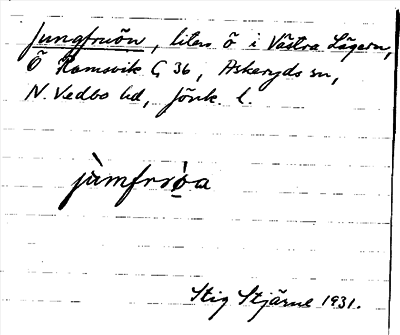 Jungfruön, liten ö i Västra Lägern,
Ö Ramsvik G 36, Askeryds sn,
N. Vedbo hd, Jönk. l.
jùmfrröa
Stig Stjärne 1931.